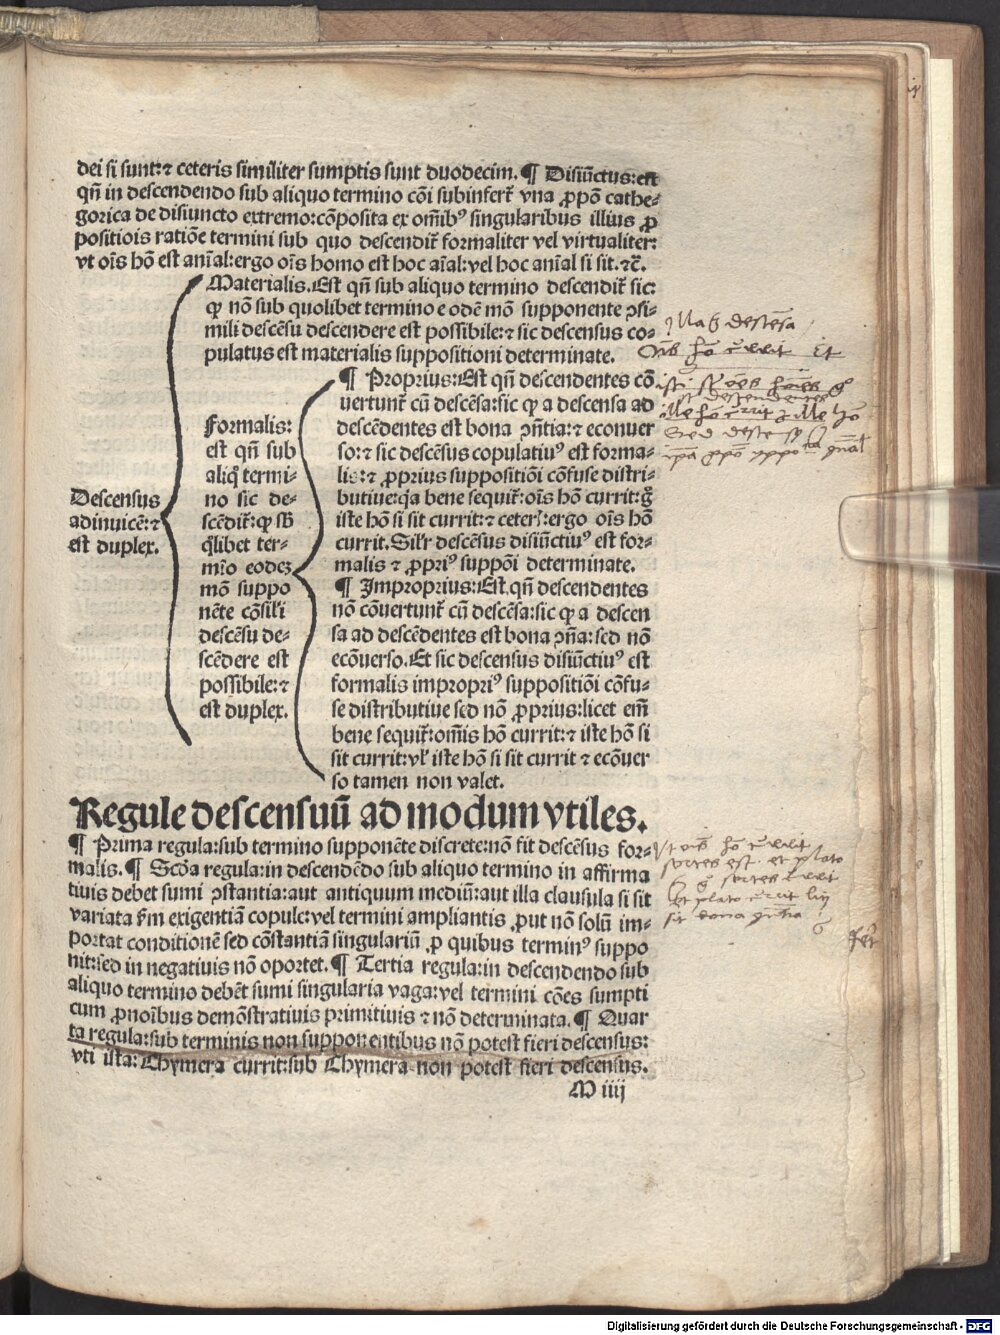 dei si sunt:⁊ ceteris similiter sumptis sunt duodecim. ¶ Disiũctus:est
qñ in descendendo sub aliquo termino cõi subinfert̃ vna ꝓpõ cathe⸗
gorica de disiuncto extremo:cõposita ex om̃ibꝰ singularibus illius ꝓ
positiois ratiõe termini sub quo descendit̃ formaliter vel virtualiter:
vt oĩs hõ est aĩal:ergo oĩs homo est hoc aĩal:vel hoc anĩal si sit.⁊c̃.
Materialis.Est qñ sub aliquo termino descendit̃ sic:
ꝙ nõ sub quolibet termino eodẽ mõ supponente ↄsi⸗
mili descẽsu descendere est possibile:⁊ sic descensus co⸗
pulatus est materialis suppositioni determinate.
Descensus
ad inuicẽ:⁊
est duplex.
Formalis:
est qñ sub
aliq̃ termi⸗
no sic de⸗
scẽdit̃:ꝙ sb̃
q̃libet ter⸗
mĩo eodeꝫ
mõ suppo
nẽte cõsil̃i
descẽsu de⸗
scẽdere est
possibile:⁊
est duplex.
¶ Proprius:Est qñ descendentes cõ
uertunt̃ cũ descẽsa:sic ꝙ a descensa ad
descẽdentes est bona ↄñtia:⁊ econuer
so:⁊ sic descẽsus copulatiuꝰ est forma⸗
lis:⁊ ꝓprius suppositiõi cõfuse distri⸗
butiue:q̃a bene sequit̃:oĩs hõ currit:g̃
iste hõ si sit currit:⁊ ceter̃:ergo oĩs hõ
currit.Sil̃r descẽsus disiũctiuꝰ est for⸗
malis ⁊ ꝓpriꝰ suppõi determinate.
¶ Improprius:Est qñ descendentes
nõ cõuertunt̃ cũ descẽsa:sic ꝙ a descen
sa ad descẽdentes est bona ↄña:sed nõ
ecõuerso.Et sic descensus disiũctiuꝰ est
formalis impropriꝰ suppositiõi cõfu⸗
se distributiue sed nõ ꝓprius:licet em̃
bene sequit̃:om̃is hõ currit:⁊ iste hõ si
sit currit:vl̃ iste hõ si sit currit ⁊ ecõuer
so tamen non valet.
Regule descensuũ ad modum vtiles.
¶ Prima regula:sub termino supponẽte discrete:nõ fit descẽsus for⸗
malis. ¶ Scd̃a regula:in descendẽdo sub aliquo termino in affirma
tiuis debet sumi ↄstantia:aut antiquum mediũ:aut illa clausula si sit
variata ẜm exigentiã copule:vel termini ampliantis ,put nõ solũ im⸗
portat conditionẽ sed cõstantiã singulariũ ,ꝑ quibus terminꝰ suppo
nit:sed in negatiuis nõ oportet. ¶ Tertia regula:in descendendo sub
aliquo termino debẽt sumi singularia vaga:vel termini cões sumpti
cum ꝓnoĩbus demõstratiuis primitiuis ⁊ nõ determinata. ¶ Quar
ta regula:sub terminis non supponentibus nõ potest fieri descensus:
vti ista:Chymera currit:sub Chymera non potest fieri descensus.
M iiij
Digitalisierung gefördert durch die Deutsche Forschungsgemeinschaft - DFG